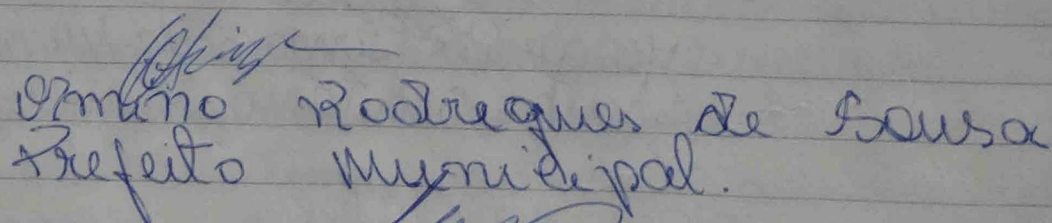 Osmino Rodregues de Sousa
Prefeito Municipal.